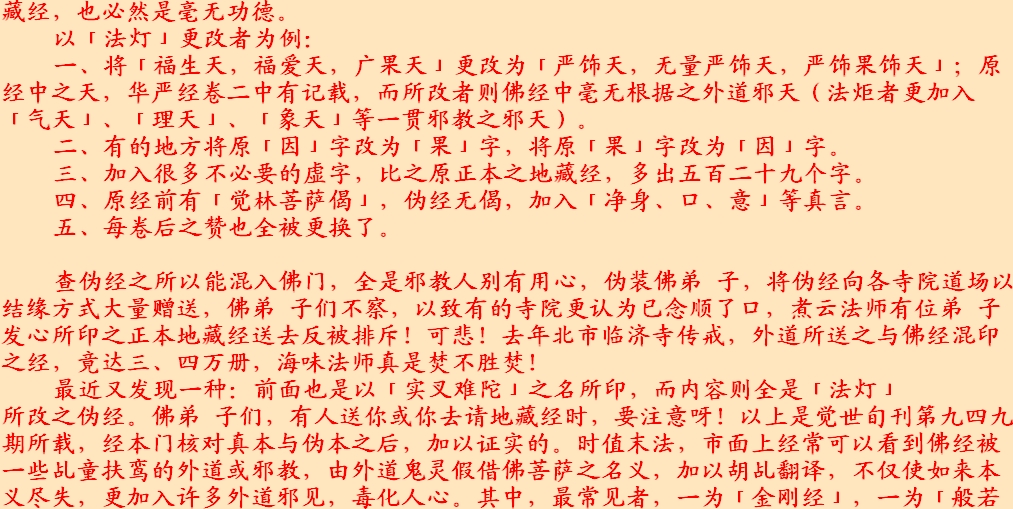 藏经，也必然是毫无功德。
以「法灯」更改者为例：
一、将「福生天，福爱天，广果天」更改为「严饰天，无量严饰天，严饰果饰天」；原
经中之天，华严经卷二中有记载，而所改者则佛经中毫无根据之外道邪天（法炬者更加入
「气天」、「理天」、「象天」等一贯邪教之邪天）。
二、有的地方将原「因」字改为「果」字，将原「果」字改为「因」字。
三、加入很多不必要的虚字，比之原正本之地藏经，多出五百二十九个字。
四、原经前有「觉林菩萨偈」，伪经无偈，加入「净身、口、意」等真言。
五、每卷后之赞也全被更换了。
查伪经之所以能混入佛门，全是邪教人别有用心，伪装佛弟 子，将伪经向各寺院道场以
结缘方式大量赠送，佛弟 子们不察，以致有的寺院更认为已念顺了口，煮云法师有位弟 子
发心所印之正本地藏经送去反被排斥！可悲！去年北市临济寺传戒，外道所送之与佛经混印
之经，竟达三、四万册，海味法师真是焚不胜焚！
最近又发现一种：前面也是以「实叉难陀」之名所印，而内容则全是「法灯」
所改之伪经。佛弟 子们，有人送你或你去请地藏经时，要注意呀！以上是觉世旬刊第九四九
期所载，经本门核对真本与伪本之后，加以证实的。时值末法，市面上经常可以看到佛经被
一些乩童扶鸾的外道或邪教，由外道鬼灵假借佛菩萨之名义，加以胡乱翻译，不仅使如来本
义尽失，更加入许多外道邪见，毒化人心。其中，最常见者，一为「金刚经」，一为「般若